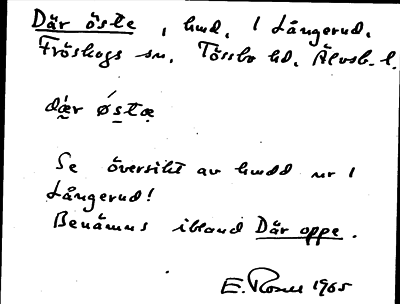 Där öste, hmd. 1 Långerud.
Fröskogs sn. Tössbo hd. Älvsb. l.
dær østæ
Se översikt av hmdd nr 1
Långerud!
Benämns ibland Där oppe.
E. Rosell 1965